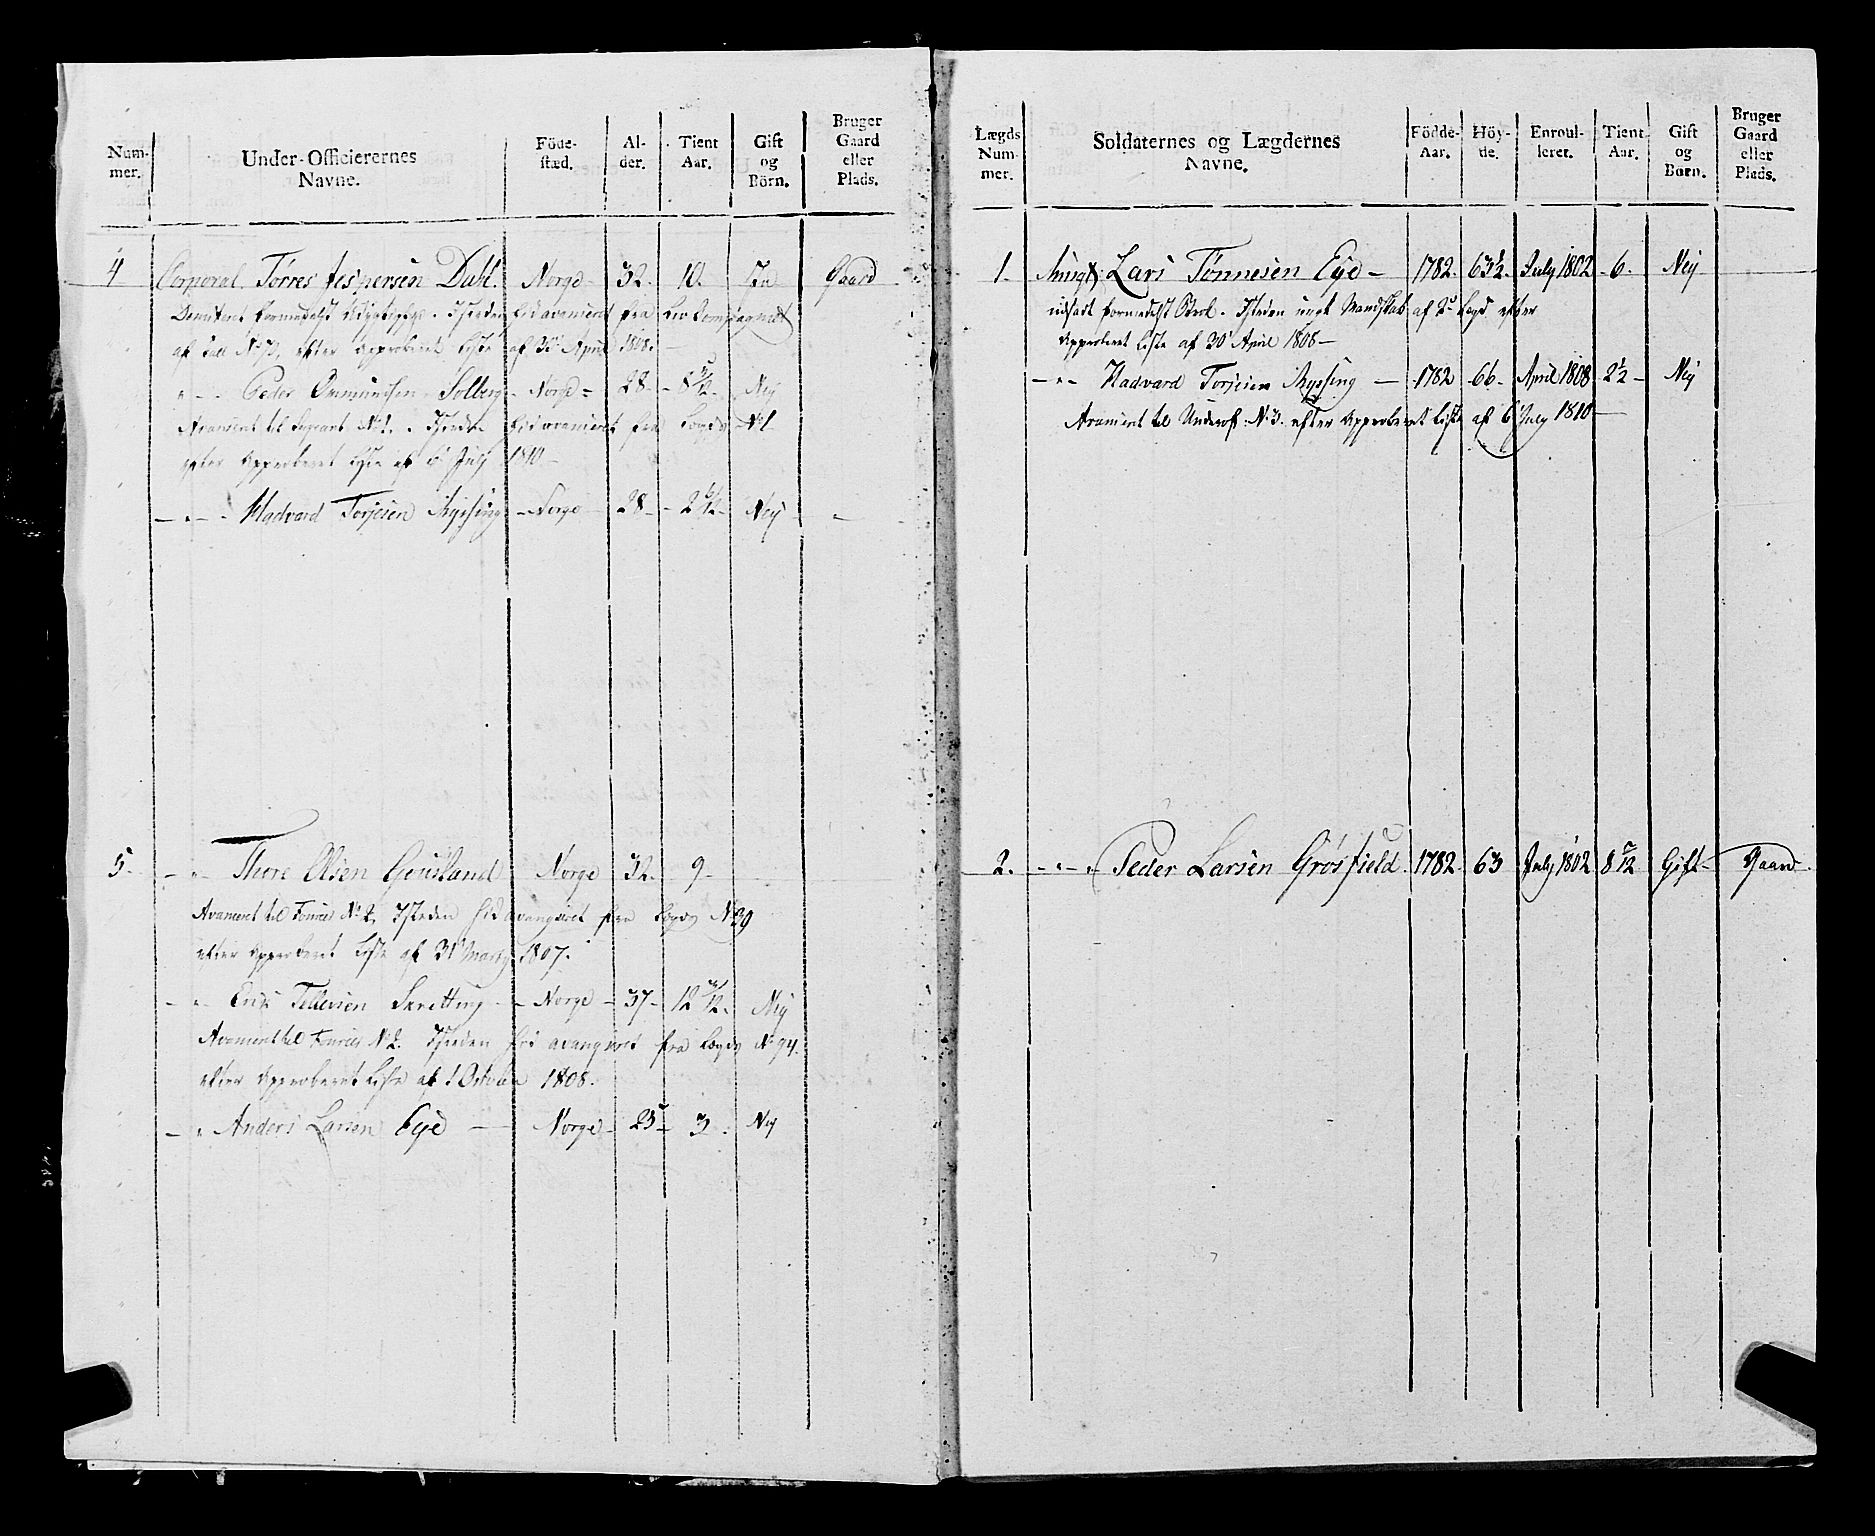 Num-
mer.
Under-Officierernes
Navne.
Föde-
stæd.
Al-
der.
Tient
Aar.
Gift
og
Börn.
Bruger
Gaard
eller
Plads.
4 Corporal Törres Jespersen Dahl. Norge 32. 10. Ja Gaard
Demiteret formedelst . Isteden hid avanceret fra Liv Compagniet
af efter Approberet Liste af 30 April 1808.
" Peder Ommundsen Solberg Norge 28 8 5/12 Nej
Avanceret til Sergeant No 1. Isteden hid avanceret fra Lægd No 1
efter Approberet Liste af 6 July 1810
" Hadvard Torjesen Ryssing Norge 28 2 6/12 Nej
5. " Thore Olsen Norge 32. 9
Avanceret til Fourier No 2. Isteden hid avangeret fra Lægd No 39
efter Approberet Liste af 31 Marty 1807.
" Erik Tellevsen Skretting Norge 37 12 Nej
Avanceret til Fourier No 2. Isteden hid avangeret fra Lægd No 94.
efter Approberet Liste af 1 October 1808.
" Anders Larsen Eye Norge 25 3. Nej
Lægds
Num-
mer.
Soldaternes og Lægdernes
Navne.
Födde-
Aar.
Höy-
de.
Enroul-
leret.
Tient
Aar.
Gift
og
Børn.
Bruger
Gaard
eller
Plads.
1. Lars Tönnesen Eye 1782. 63½. July 1802 6. Nej
udsadt formedelst Brok. Isteden ungt Mandskab af 2d Lægd efter
Approberet Liste af 30 April 1808
" Hadvard Torjesen Ryssing 1782 66 April 1808 2½ Nej
Avanceret til Underof: No 3. efter Approberet Liste af 6 July 1810
2. " Peder Larsen Grösfield 1782. 63 July 1802 8 5/12 Gift Gaard